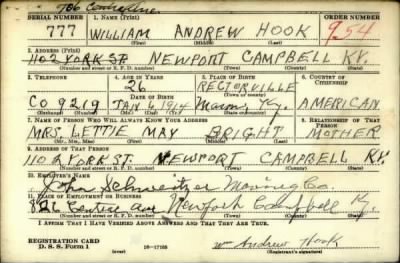 786 Centre Line
SERIAL NUMBER 1. NAME (Print) ORDER NUMBER
777 WILLIAM ANDREW HOOK 954
(First) (Middle) (Last)
2. ADDRESS (Print)
1102 YORK ST. NEWPORT CAMPBELL KY.
(Number and street or R. F. D. number) (Town) (County) (State)
3. TELEPHONE 4. AGE IN YEARS 5. PLACE OF BIRTH 6. COUNTRY OF CITIZENSHIP
26 RECTORVILLE
DATE OF BIRTH (Town or county)
CO 9219 JAN 6, 1914 Mason, Ky. AMERICAN
(Exchange) (Number) (Mo.) (Day) (Yr.) (State or country)
7. NAME OF PERSON WHO WILL ALWAYS KNOW YOUR ADDRESS 8. RELATIONSHIP OF THAT PERSON
MRS. LETTIE MAY BRIGHT MOTHER
(Mr., Mrs., Miss) (First) (Middle) (Last)
9. ADDRESS OF THAT PERSON
1102 YORK ST. NEWPORT CAMPBELL KY.
(Number and street or R. F. D. number) (Town) (County) (State)
10. EMPLOYER'S NAME
John Schweitzer Moving Co.
11. PLACE OF EMPLOYMENT OR BUSINESS
822 Central Ave Newport Campbell Ky.
(Number and street or R. F. D. number) (Town) (County) (State)
I AFFIRM THAT I HAVE VERIFIED ABOVE ANSWERS AND THAT THEY ARE TRUE.
REGISTRATION CARD
D. S. S. Form 1 16-17105 Wm Andrew Hook
(Registrant's signature)